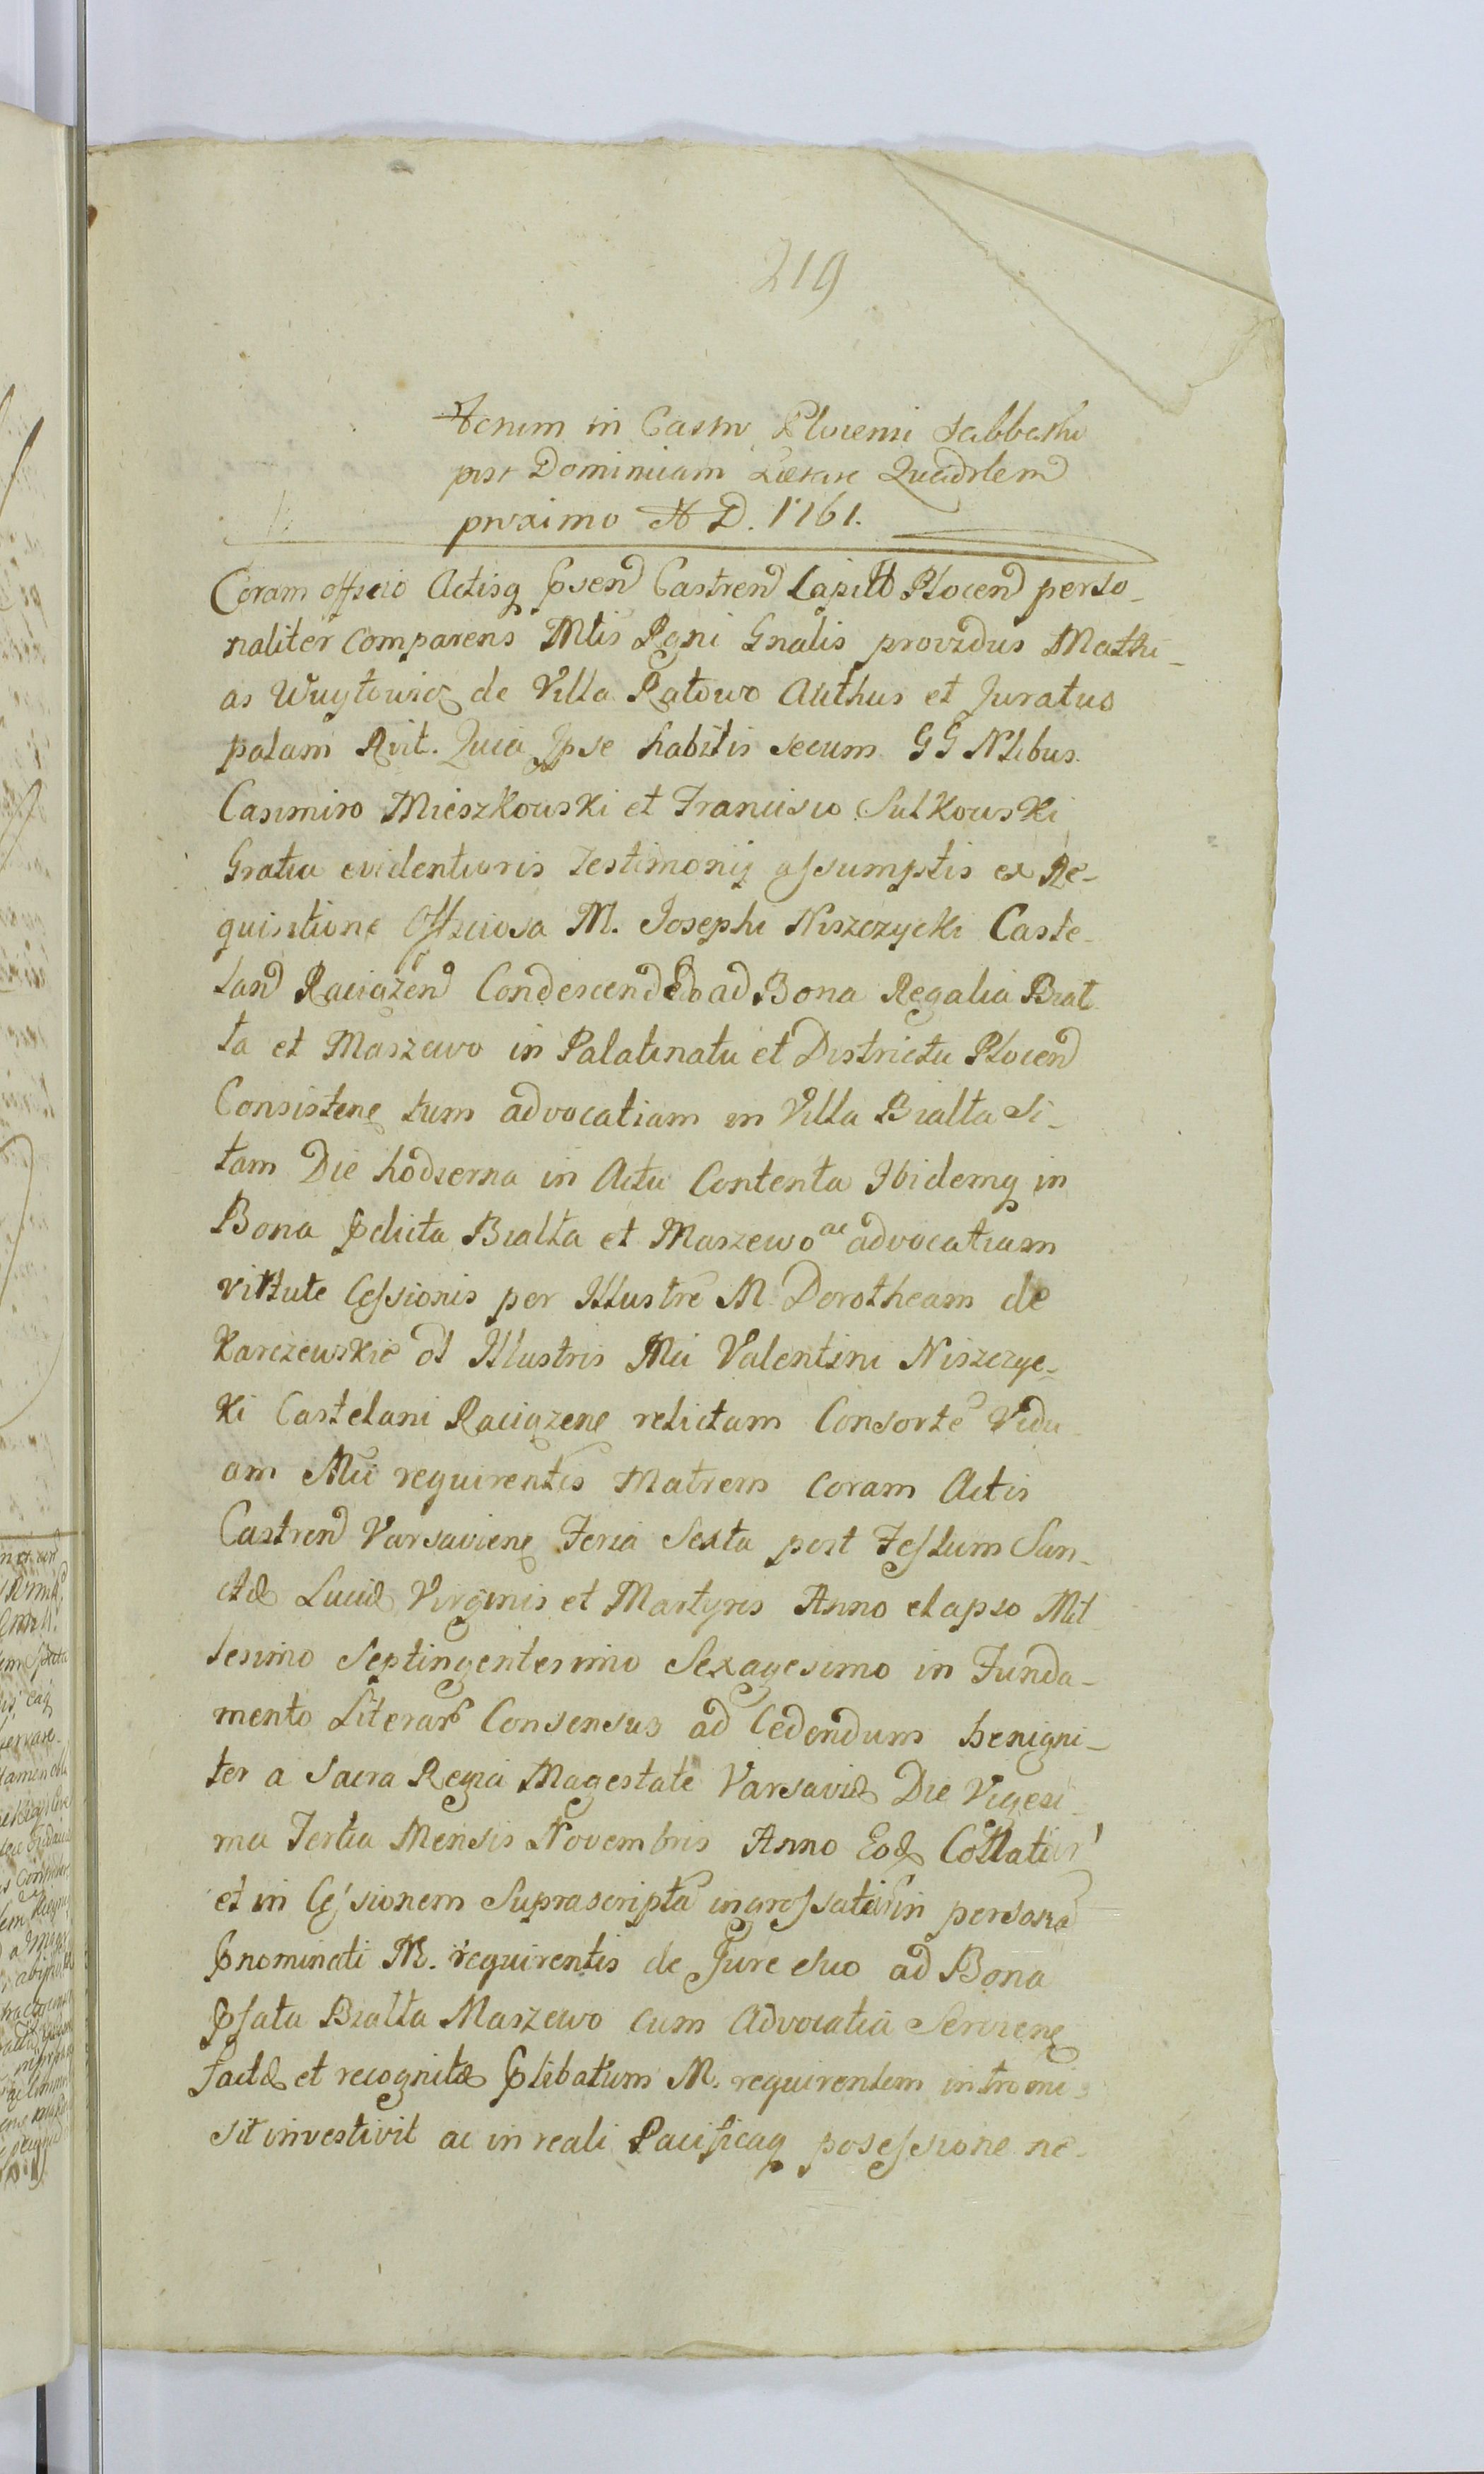 219
Actum in Castro Plocensi Sabbatho
post Dominicam Lætare Quadrlem
proximo A D. 1761.
Coram officio Actisq pñsen Castren Capitl Plocen perso-
naliter comparens Mtis Rgni Gnalis providus Mathi-
as Wuytowicz de Villa Ratowo Authus et Juratus
palam Rvit. Quia Ipse habitis secum GG Nlibus
Casimiro Mieszkowski et Francisco Sulkowski
Gratia evidentioris Testimonij assumptis ex Re-
quisitione Officiosa M. Josephi Niszczycki Caste-
lan Raciązen Condescendedo ad Bona Regalia Bial
ta et Maszewo in Palatinatu et Districtu Plocen
Consisten tum advocatiam in Villa Bialta Si-
tam Die hodierna in Actu Contenta Ibidemq in
Bona pdicta Bialta et Maszewo ac advocatiam
virtute Cessionis per Illustre M. Dorotheam de
Karczewskie ol Illustris Mci Valentini Niszczyc-
ki Castelani Raciązen relictam Consorte Vidu
am Mci requirentis Matrem coram Actis
Castren Varsavien Feria Sexta post Festum San-
ctæ Luciæ Virginis et Martyris Anno elapso Mil
lesimo Septingentesimo Sexagesimo in Funda-
mento Literar Consensus ad Cedendum benigni-
ter a Sacra Regia Magestate Varsaviæ Die Vigesi-
ma Tertia Mensis Novembris Anno Eod Collatar
et in Cessionem Suprascripta ingrossatar in persona
pnominati M. requirentis de Jure Suo ad Bona
pfata Bialta Maszewo cum Advocatia Servien
factæ et recognitæ plibatum M. requirentem intromi-
sit investivit ac in reali Pacificaq posessione re-